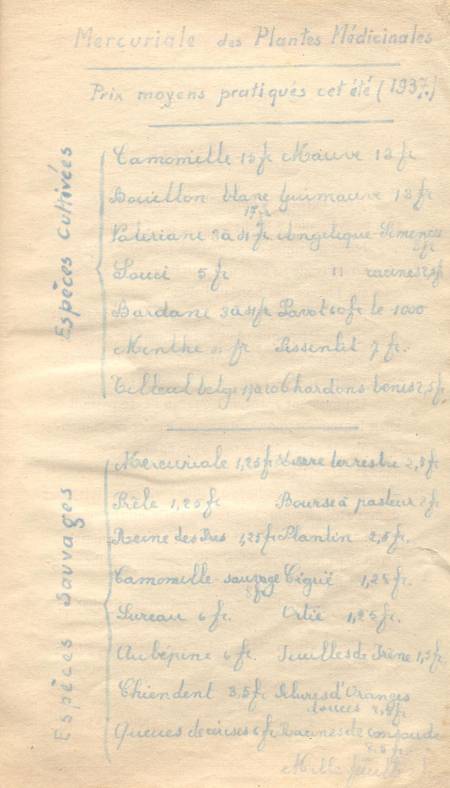 Mercuriale des Plantes Médicinales
Prix moyens pratiqués cet été (1937.)
Espèces Cultivées
Camomille 15 fr Mauve 12 fr
Bouillon blanc Guimauve 13 fr
17 fr
Valériane 3 à 4 fr Angélique Semences
fr
Souci 5 fr " racines
Bardane 3 à 4 fr Pavot 60 fr le 1000
Menthe fr Pissenlit 7 fr.
Tilleul belge Chardons bénis 2,5 fr
Espèces Sauvages
Mercuriale 1,25 fr Lierre terrestre 2,5 fr
Prêle 1,25 fr Bourse à pasteur 2 fr
Reine des Prés 1,25 fr Plantin 2,5 fr.
Camomille sauvage Ciguë 1,25 fr.
5 fr
Sureau 6 fr. Ortie 1,25 fr.
Aubépine 6 fr. Feuilles de Frêne 1,5 fr
Chiendent 3,5 fr Pelures d'Oranges
douces fr
Queues de cerises 6 fr Racines de consoude
fr.
Millefeuille